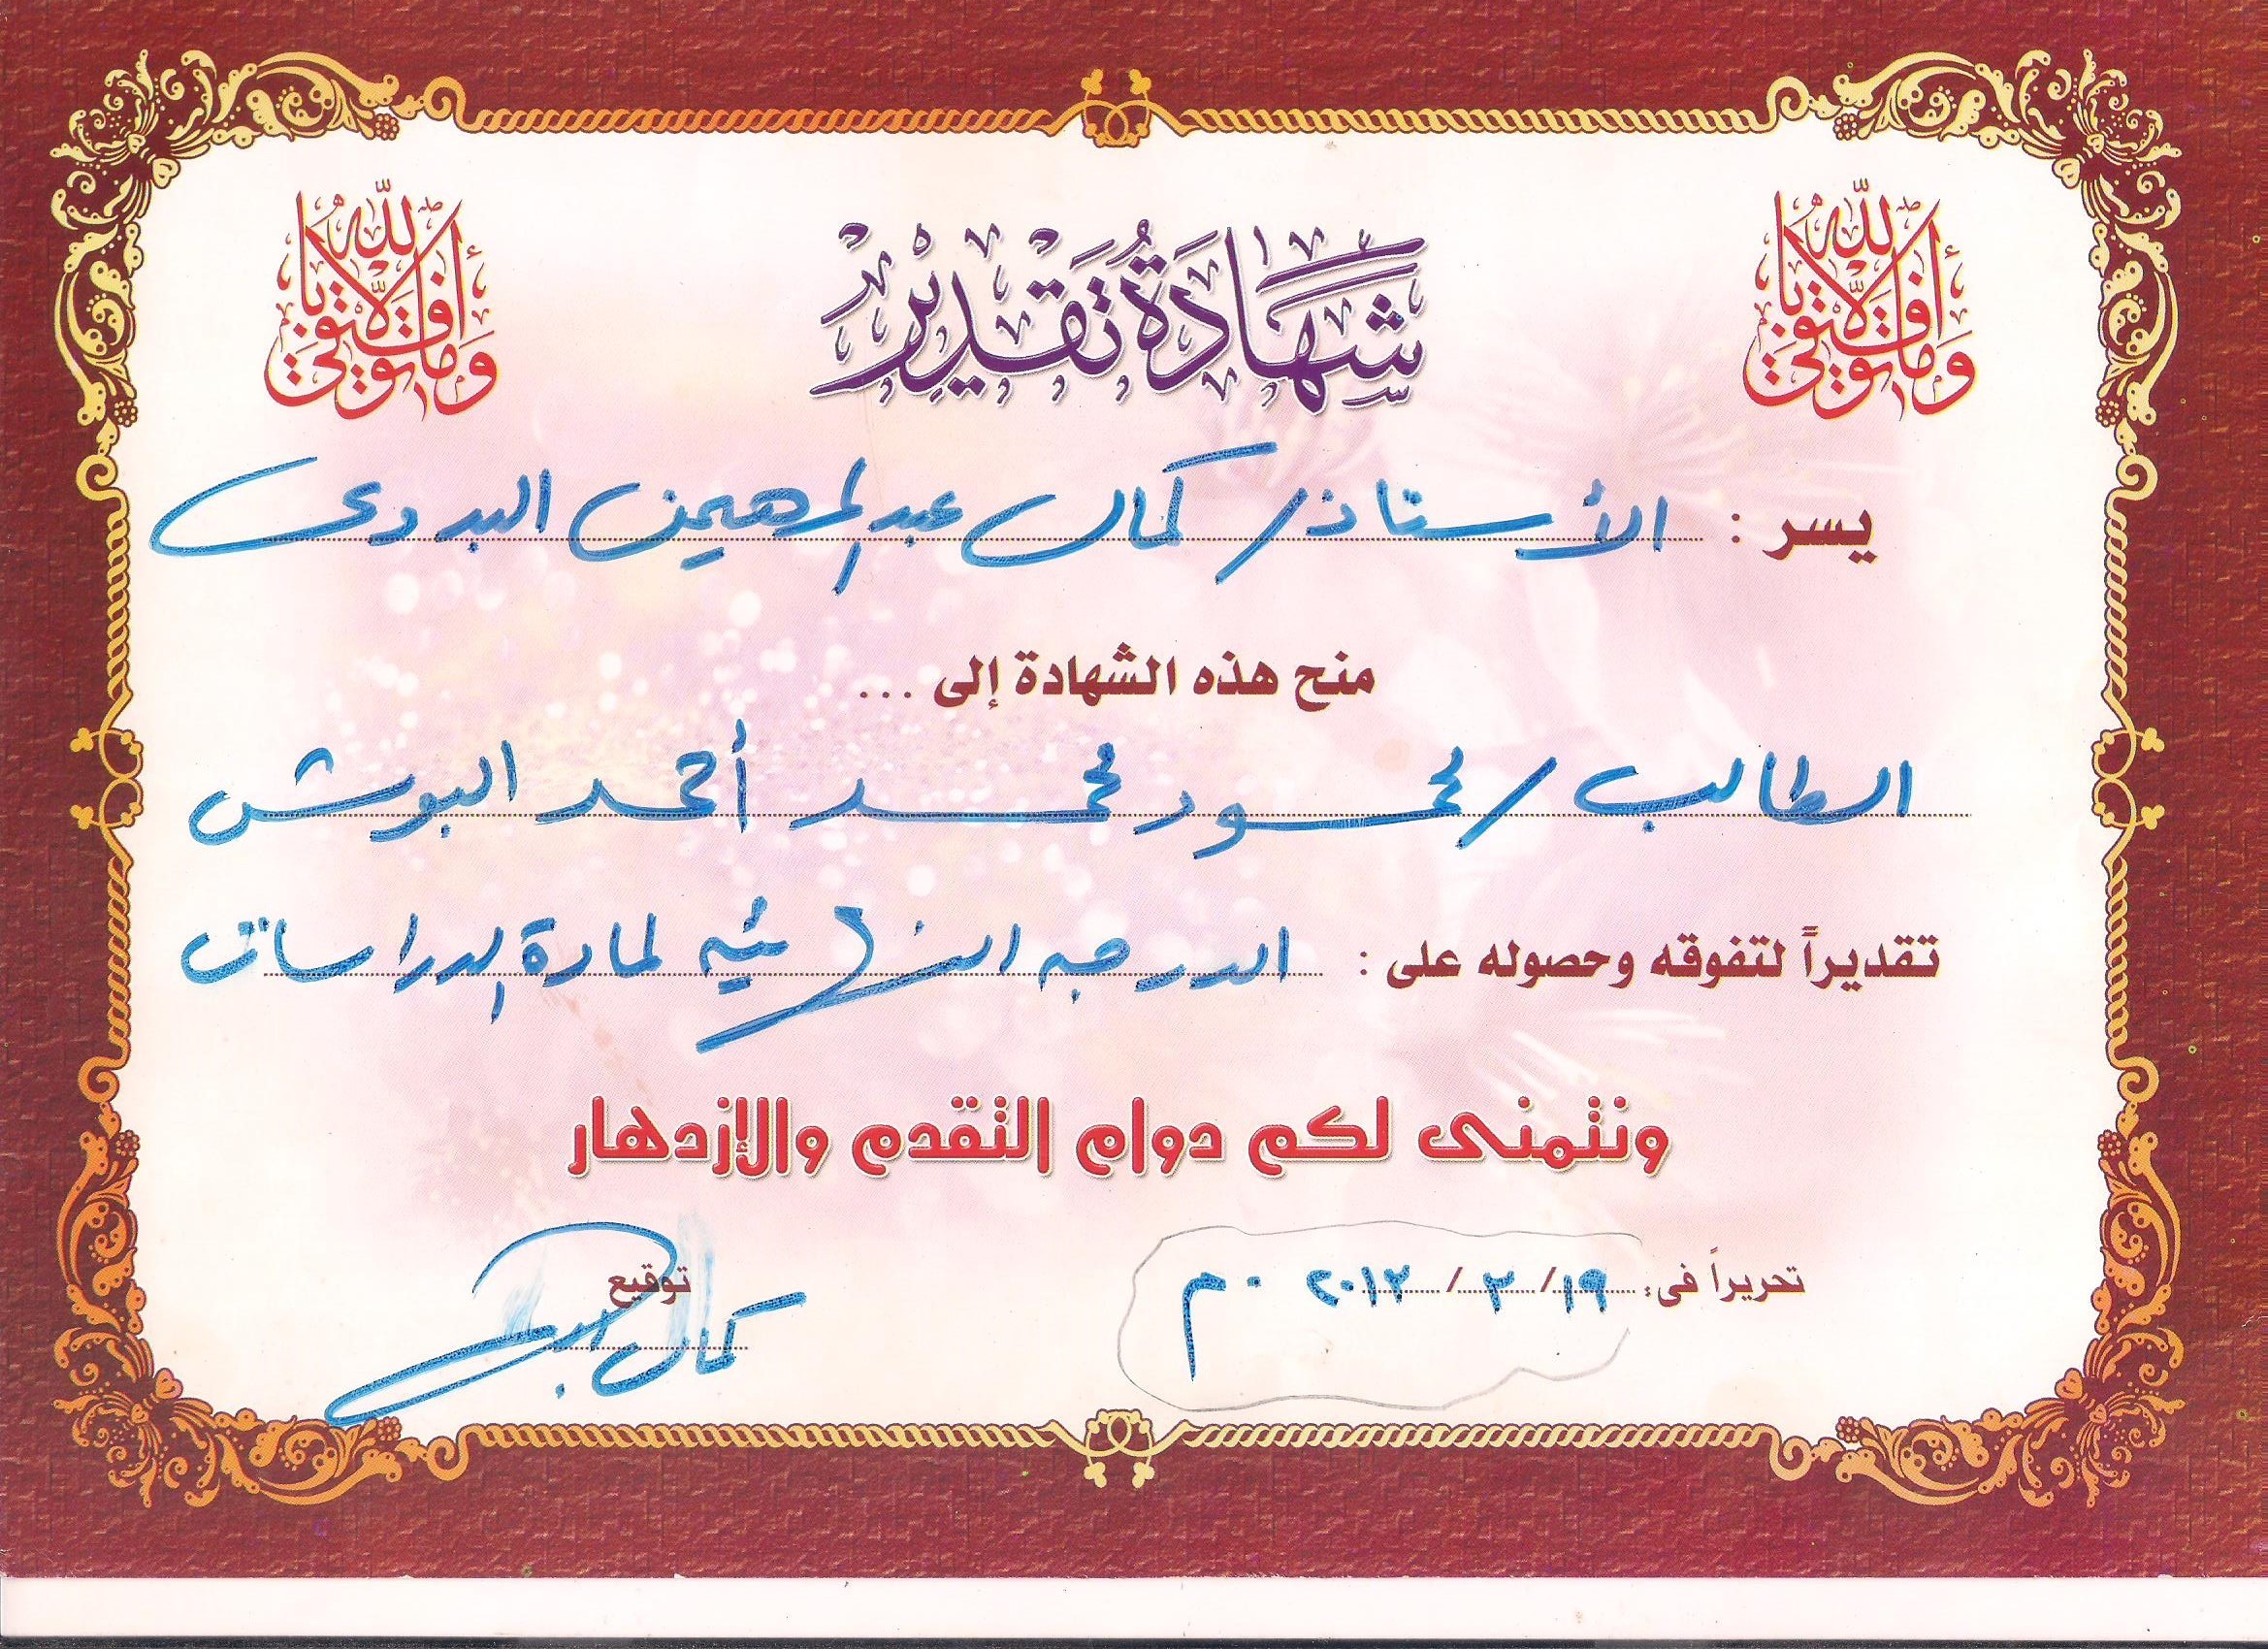 وما توفيقي إلا بالله
شَهَادَةُ تَقْدِيْر
وما توفيقي إلا بالله
يسر : الأستاذ / كمال عبد المهيمن البددى
منح هذه الشهادة إلى ...
الطالب / محمود محمد أحمد البوش
تقديراً لتفوقه وحصوله على : الدرجه النهائيه لمادة الدراسات
ونتمنى لكم دوام التقدم والإزدهار
تحريراً فى: ١٩ / ٢ / ٢٠١٢ م
توقيع
كمال